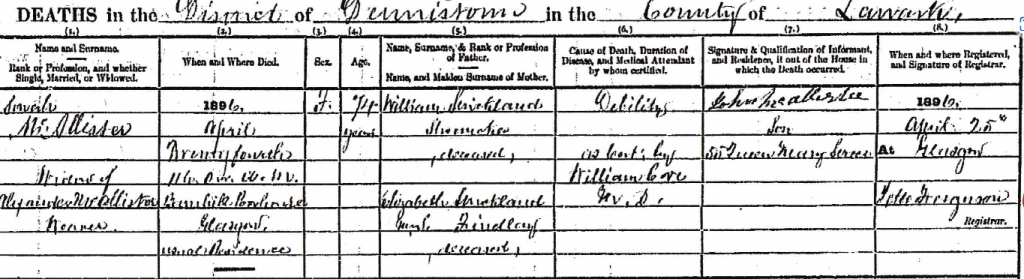 DEATHS in the District of Dennistoun in the County of Lanark,
(1.) (2.) (3.) (4.) (5.) (6.) (7.) (8.)
Name and Surname. Rank or Profession, and whether Single, Married, or Widowed.
When and Where Died.
Sex.
Age.
Name, Surname, & Rank or Profession of Father. Name, and Maiden Surname of Mother.
Cause of Death, Duration of Disease, and Medical Attendant by whom certified.
Signature & Qualification of Informant, and Residence, if out of the House in which the Death occurred.
When and where Registered, and Signature of Registrar.
Sarah
McAllister
Widow of
Alexander McAllister
Weaver
1896,
April
Twenty fourth
11h. 0m. A.M.
Poorhouse
Glasgow.
usual Residence
F.
74
years
William Strickland
Shoemaker
deceased,
Elizabeth Strickland
m.s. Findlay
deceased,
Debility
as cert. by
William Core
M.D.
John McAllister
Son
55 Queen Mary Street
1896,
April 25"
At Glasgow
Ferguson
Registrar.